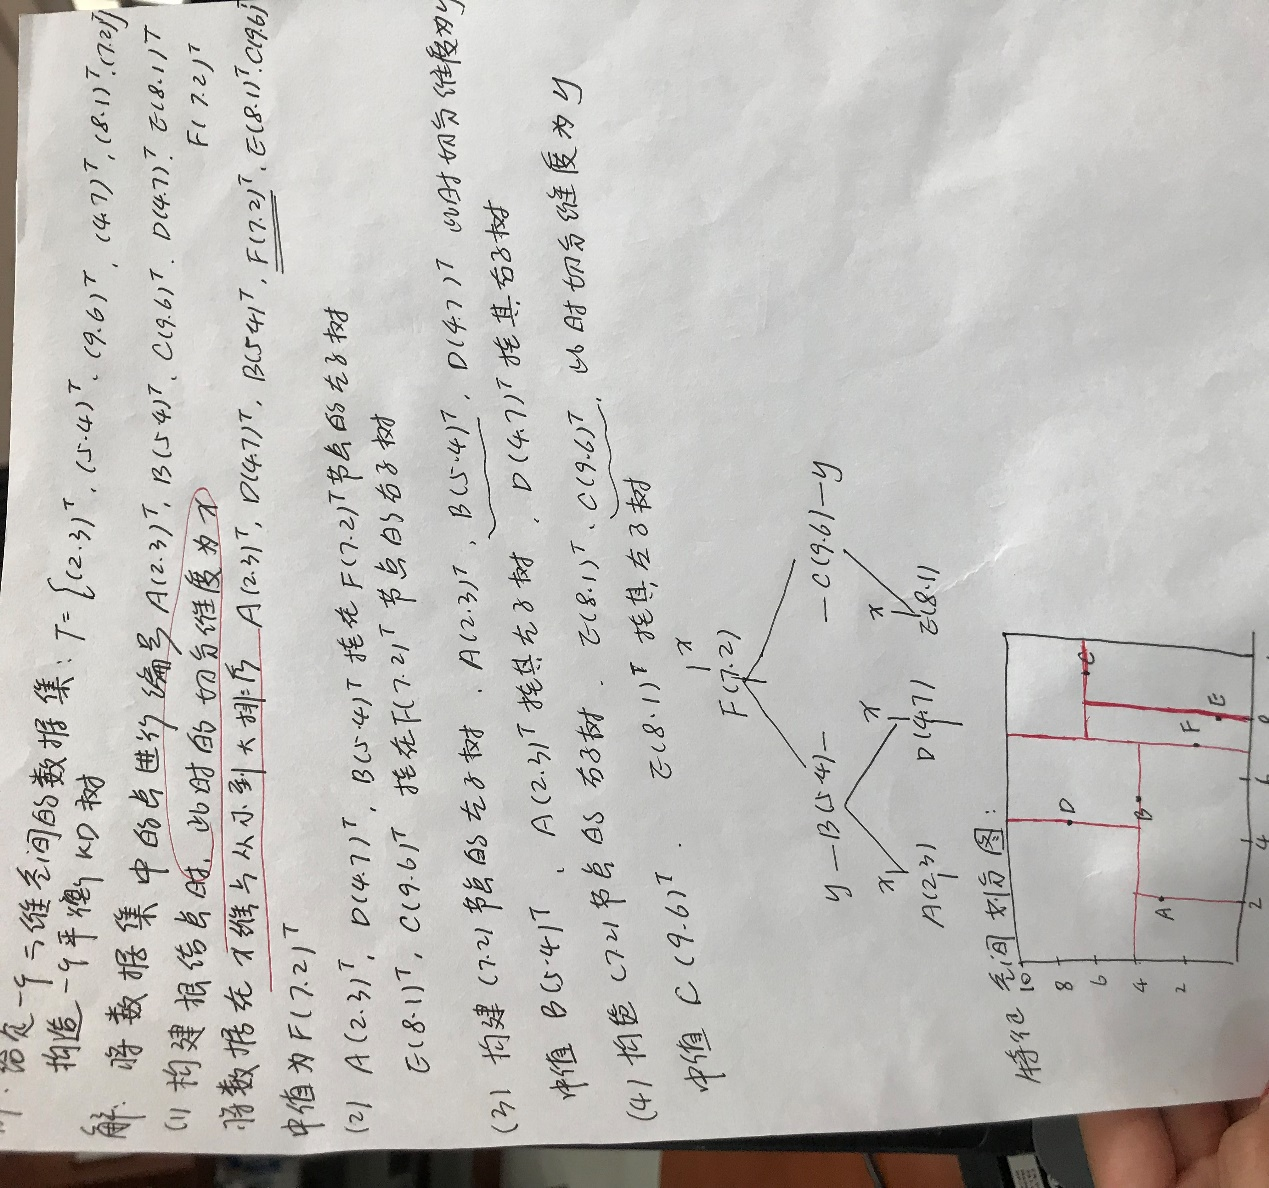 给定一个二维空间的数据集: T={(2.3)ᵀ, (5.4)ᵀ, (9.6)ᵀ, (4.7)ᵀ, (8.1)ᵀ, (7.2)ᵀ}
构造一个平衡KD树
解. 将数据集中的点进行编号 A(2.3)ᵀ, B(5.4)ᵀ, C(9.6)ᵀ. D(4.7)ᵀ. E(8.1)ᵀ
F(7.2)ᵀ
(1) 构建根结点时, 此时的切分维度为x
将数据在x维与从小到大排序 A(2.3)ᵀ, D(4.7)ᵀ, B(5.4)ᵀ, F(7.2)ᵀ, E(8.1)ᵀ. C(9.6)ᵀ
中值为F(7.2)ᵀ
(2) A(2.3)ᵀ, D(4.7)ᵀ, B(5.4)ᵀ 挂在F(7.2)ᵀ节点的左子树
E(8.1)ᵀ, C(9.6)ᵀ 挂在F(7.2)ᵀ节点的右子树
(3) 构建(7.2)节点的左子树. A(2.3)ᵀ, B(5.4)ᵀ, D(4.7)ᵀ 此时切分维度为y
中值 B(5.4)ᵀ, A(2.3)ᵀ挂其左子树, D(4.7)ᵀ挂其右子树
(4) 构造(7.2)节点的右子树. E(8.1)ᵀ, C(9.6)ᵀ, 此时切分维度为y
中值 C(9.6)ᵀ. E(8.1)ᵀ挂其左子树
x
F(7.2)
y — B(5.4) — — C(9.6) — y
x x x
A(2,3) D(4.7) E(8.1)
特征空间划分图:
10
8
6
4
2
A
B
C
D
E
F
2 4 6 8